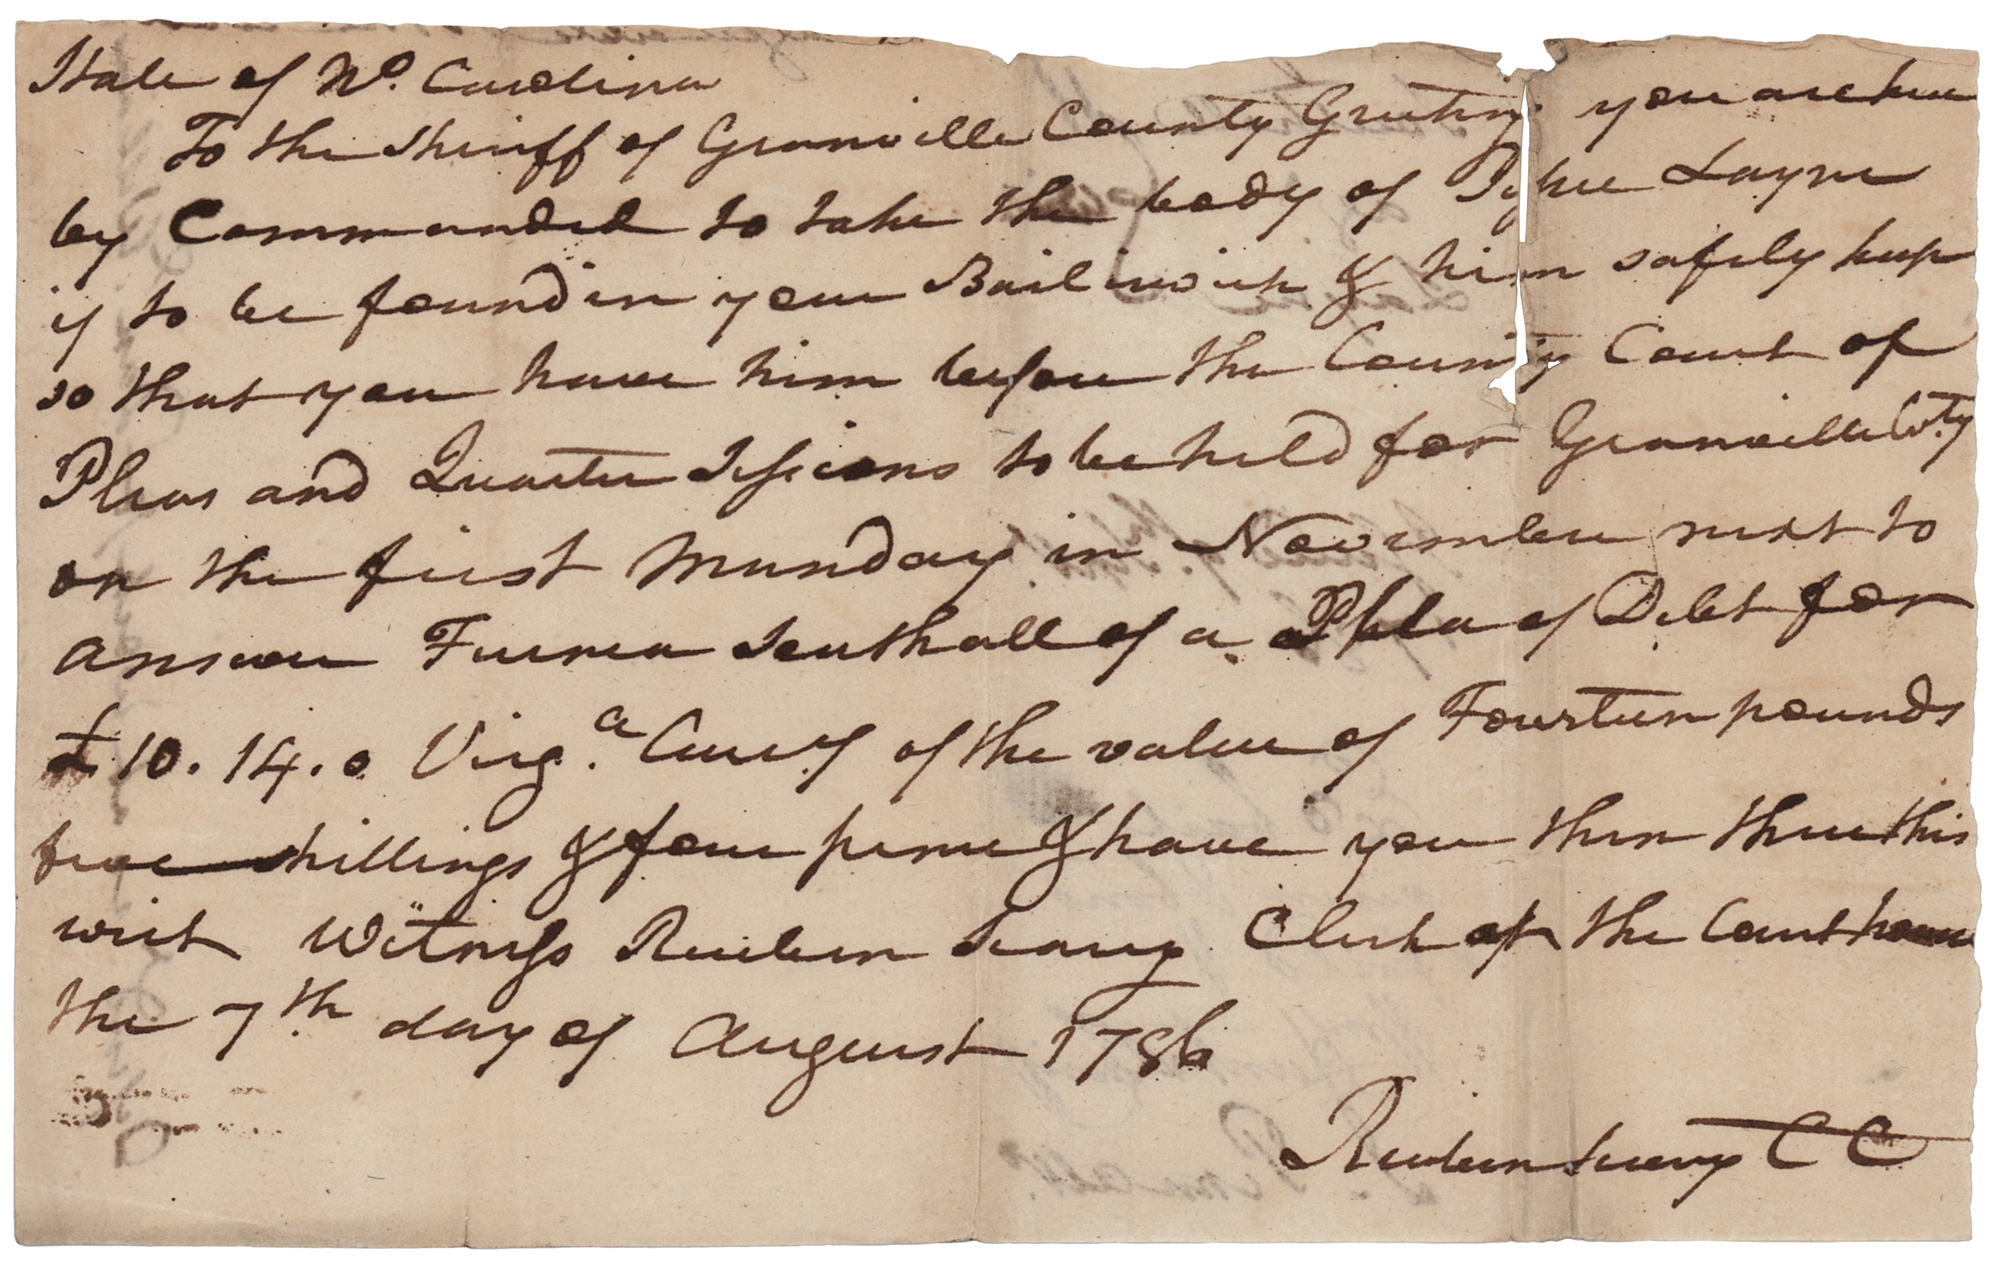 State of No. Carolina
To the Sheriff of Granville County Greeting you are here
by Commanded to take the body of Tyhee Layne
if to be found in your Bailiwick & him safely keep
so that you have him before the County Court of
Pleas and Quarter Sessions to be held for Granville Coty
on the first Munday in November next to
answer Furnea Southall of a Plea of Debt for
£ 10. 14. 0 Virga. Curcy of the value of Fourteen pounds
five shillings & four pence & have you then there this
writ Witness Reuben Searcy Clerk at the Court house
the 7th day of August 1786
Reuben Searcy C C